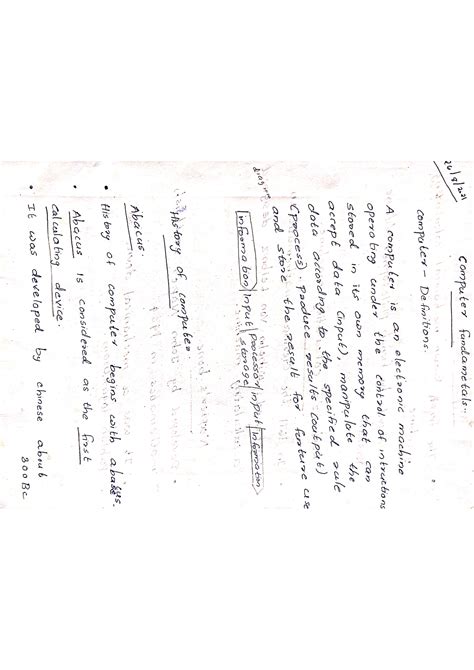 24/8/21
Computer fundametals:-
Computer - Definitions.
A computer is an electronic machine
operating under the control of intructions
stored in its own memory that can
accept data (input), manipulate the
data according to the specified rule
(process). Produce results (output)
and store the result for funture use
diagram
Information input processor input Information
storage
History of computer
Abacus
• History of computer begins with abacus.
• Abaccus is considered as the first
calculating device.
• It was developed by chinese about
300BC